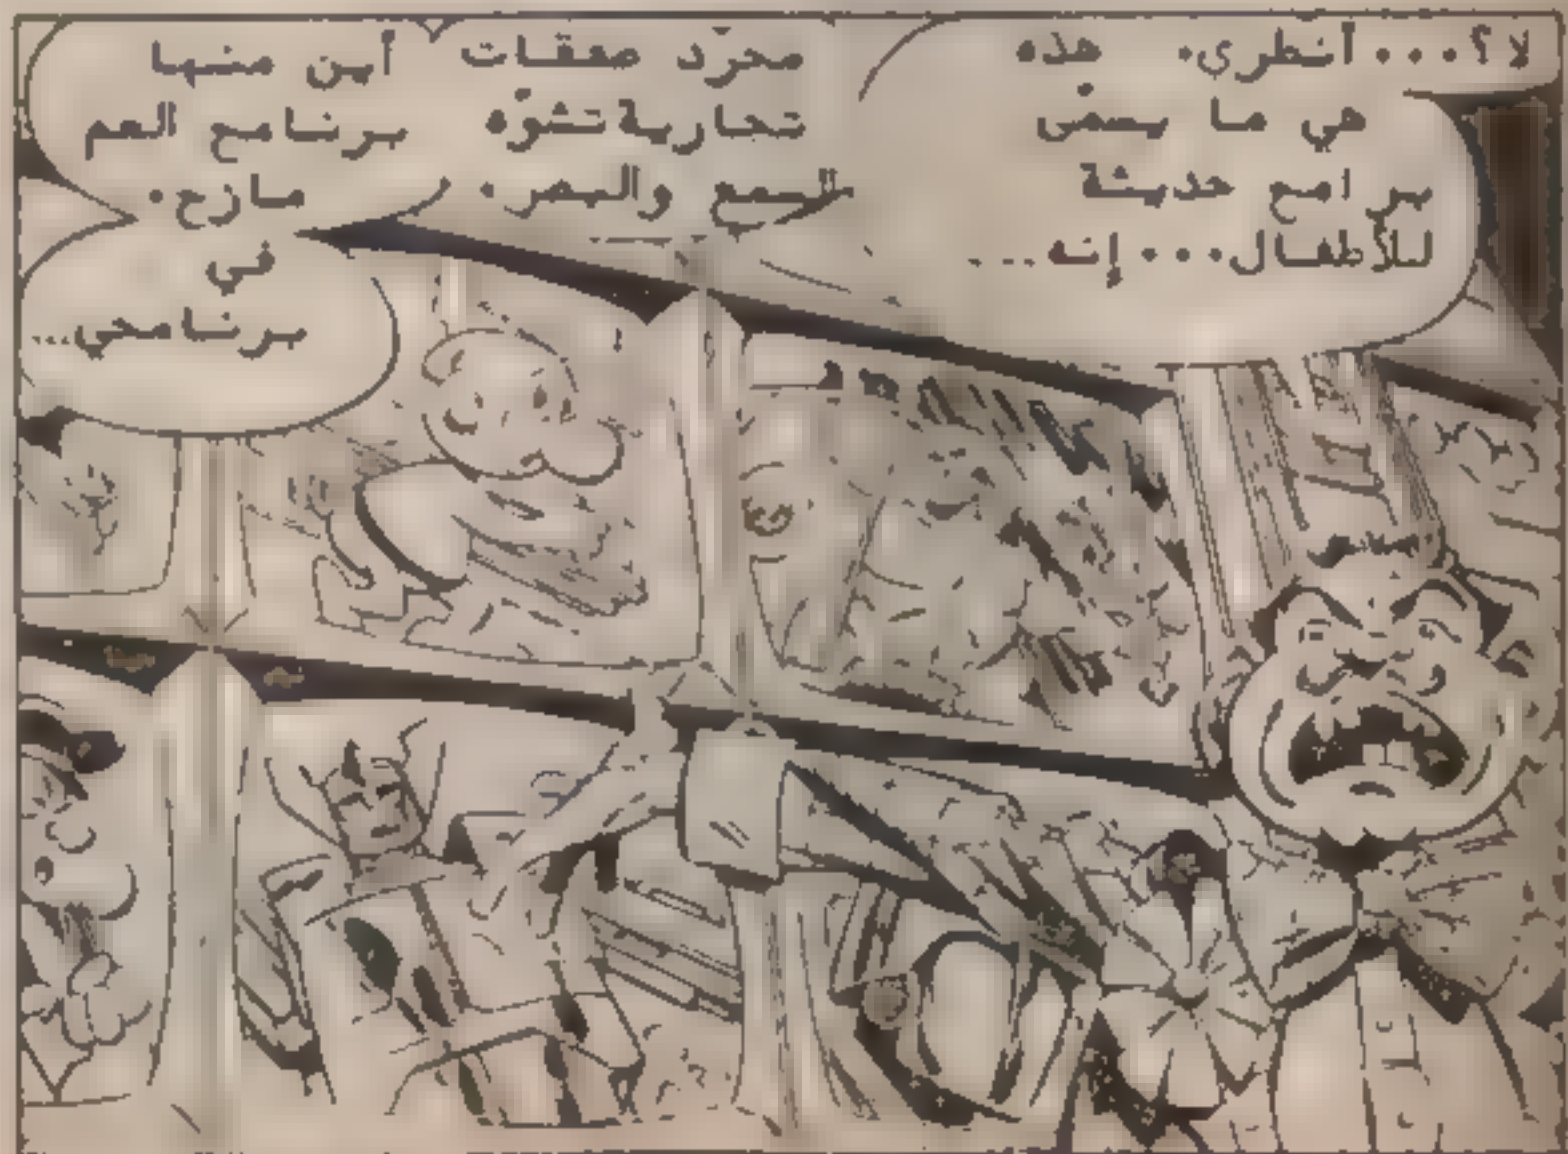 لا؟...أنظري. هذه
هي ما يسمى
برامج حديثة
للأطفال...إنه....
مجرّد صفقات
تجارية تشوّه
السمع والبصر.
أين منها
برنامج العم
مازح.
في
برنامجي...